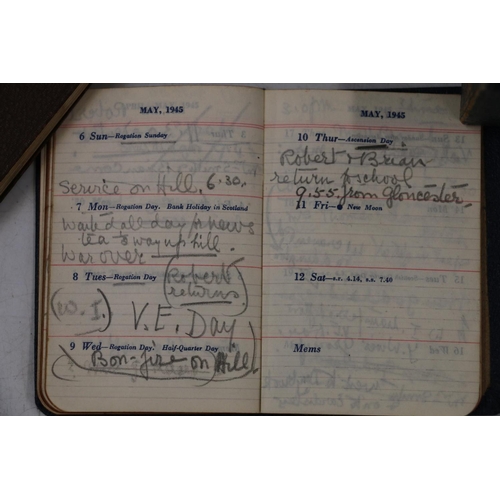 MAY, 1945
6 Sun—Rogation Sunday
Service on Hill. 6.30.
7 Mon—Rogation Day. Bank Holiday in Scotland
Waited all day for news
tea ½ way up hill.
War over
8 Tues—Rogation Day
Robert
returns.
(W.I.)
V.E. Day
9 Wed—Rogation Day. Half-Quarter Day
Bon-fire on Hill
MAY, 1945
10 Thur—Ascension Day
Robert & Brian
return to school
9.55. from Gloncester.
11 Fri—● New Moon
12 Sat—s.r. 4.14, s.s. 7.40
Mems